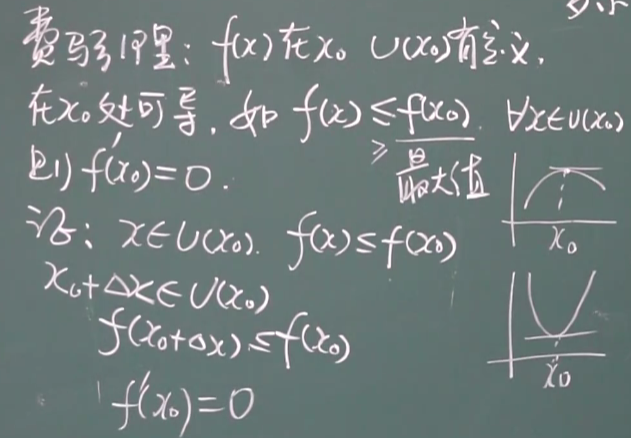 费马引理: f(x)在x₀ U(x₀)有定义,
在x₀处可导, 如 f(x)≤f(x₀). ∀x∈U(x₀)
≥ 最大值
则 f'(x₀)=0.
x₀
证: x∈U(x₀). f(x)≤f(x₀)
x₀+Δx∈U(x₀)
f(x₀+Δx)≤f(x₀)
x₀
f'(x₀)=0